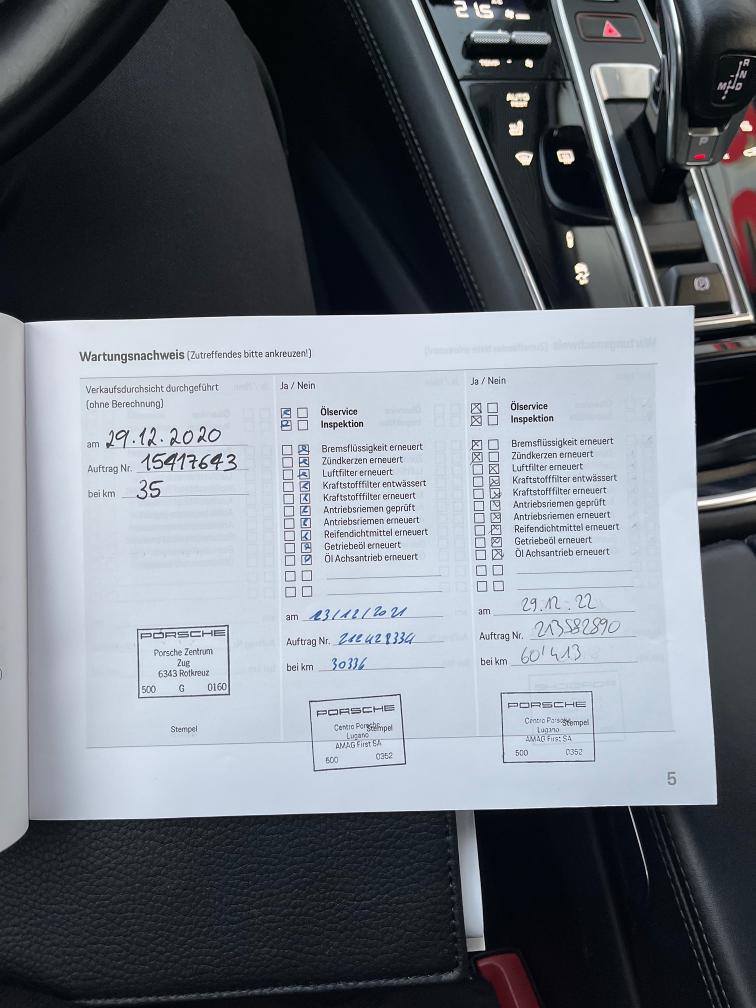 21.5
AUTO
R
N
M D
P
Wartungsnachweis (Zutreffendes bitte ankreuzen!)
Verkaufsdurchsicht durchgeführt
(ohne Berechnung)
am 29.12.2020
Auftrag Nr. 15417643
bei km 35
PORSCHE
Porsche Zentrum
Zug
6343 Rotkreuz
500 G 0160
Stempel
Ja / Nein
Ölservice
Inspektion
Bremsflüssigkeit erneuert
Zündkerzen erneuert
Luftfilter erneuert
Kraftstofffilter entwässert
Kraftstofffilter erneuert
Antriebsriemen geprüft
Antriebsriemen erneuert
Reifendichtmittel erneuert
Getriebeöl erneuert
Öl Achsantrieb erneuert
am 23/12/2021
Auftrag Nr. 212428334
bei km 30336
PORSCHE
Centro Porsche
Stempel
Lugano
AMAG First SA
500 0352
Ja / Nein
Ölservice
Inspektion
Bremsflüssigkeit erneuert
Zündkerzen erneuert
Luftfilter erneuert
Kraftstofffilter entwässert
Kraftstofffilter erneuert
Antriebsriemen geprüft
Antriebsriemen erneuert
Reifendichtmittel erneuert
Getriebeöl erneuert
Öl Achsantrieb erneuert
am 29.12.22
Auftrag Nr. 213582890
bei km 60'413
PORSCHE
Centro Porsche
Stempel
Lugano
AMAG First SA
500 0352
5